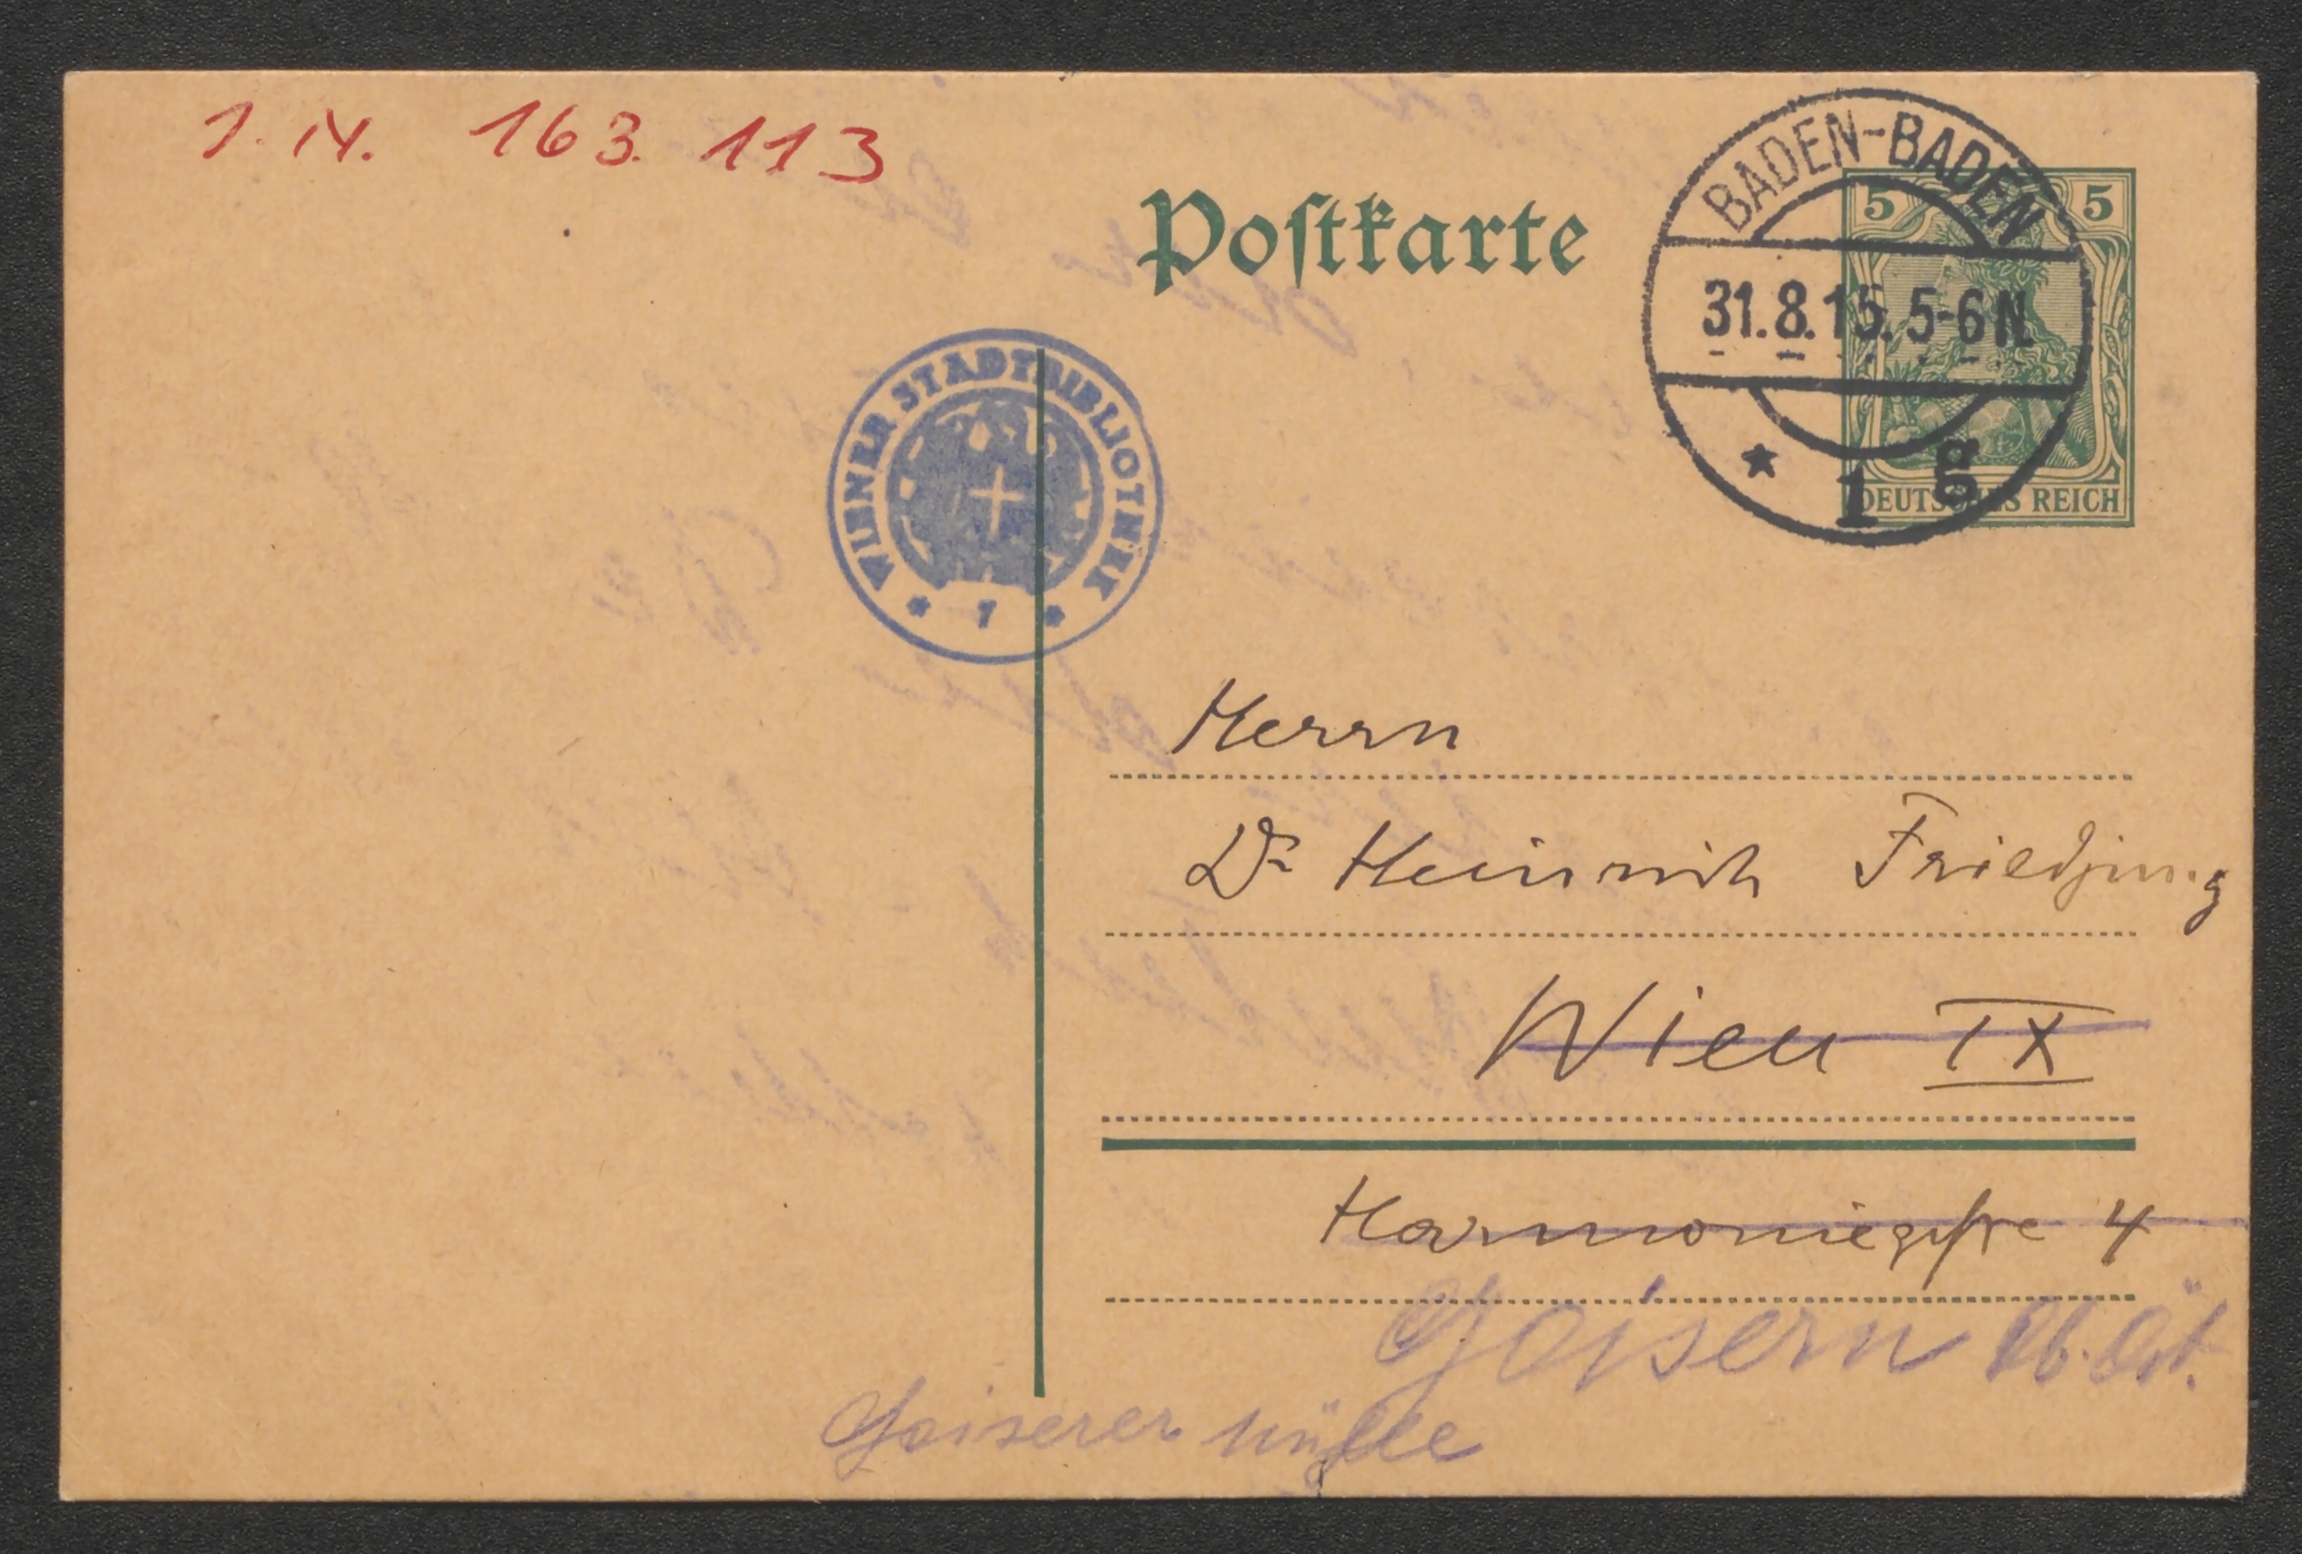 J. N. 163.113
Postkarte
BADEN-BADEN
31.8.15. 5-6N
* 1 g
5 5
DEUTSCHES REICH
WIENER STADTBIBLIOTHEK
* 7 *
Herrn
Dr Heinrich Friedjung
Wien IX
Harmoniegasse 4
Goisern Ob. Öst.
Goiserer Mühle